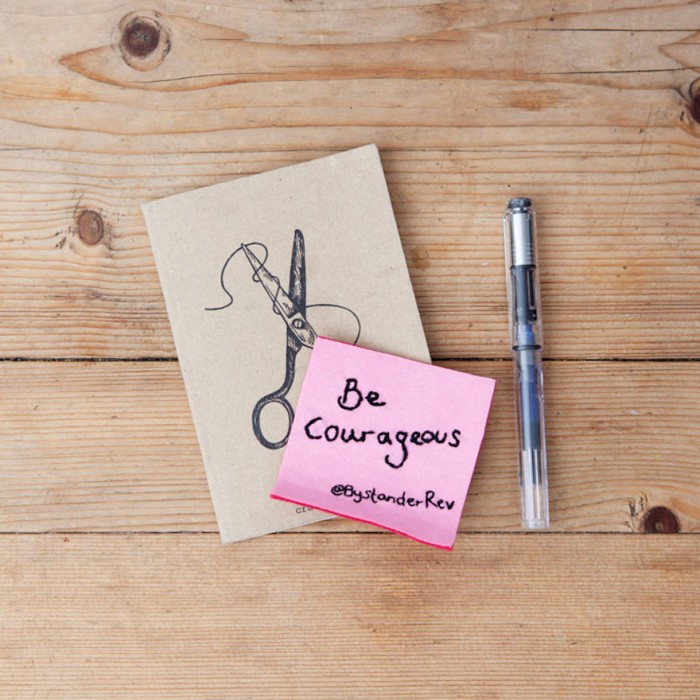 Be
Courageous
@BystanderRev